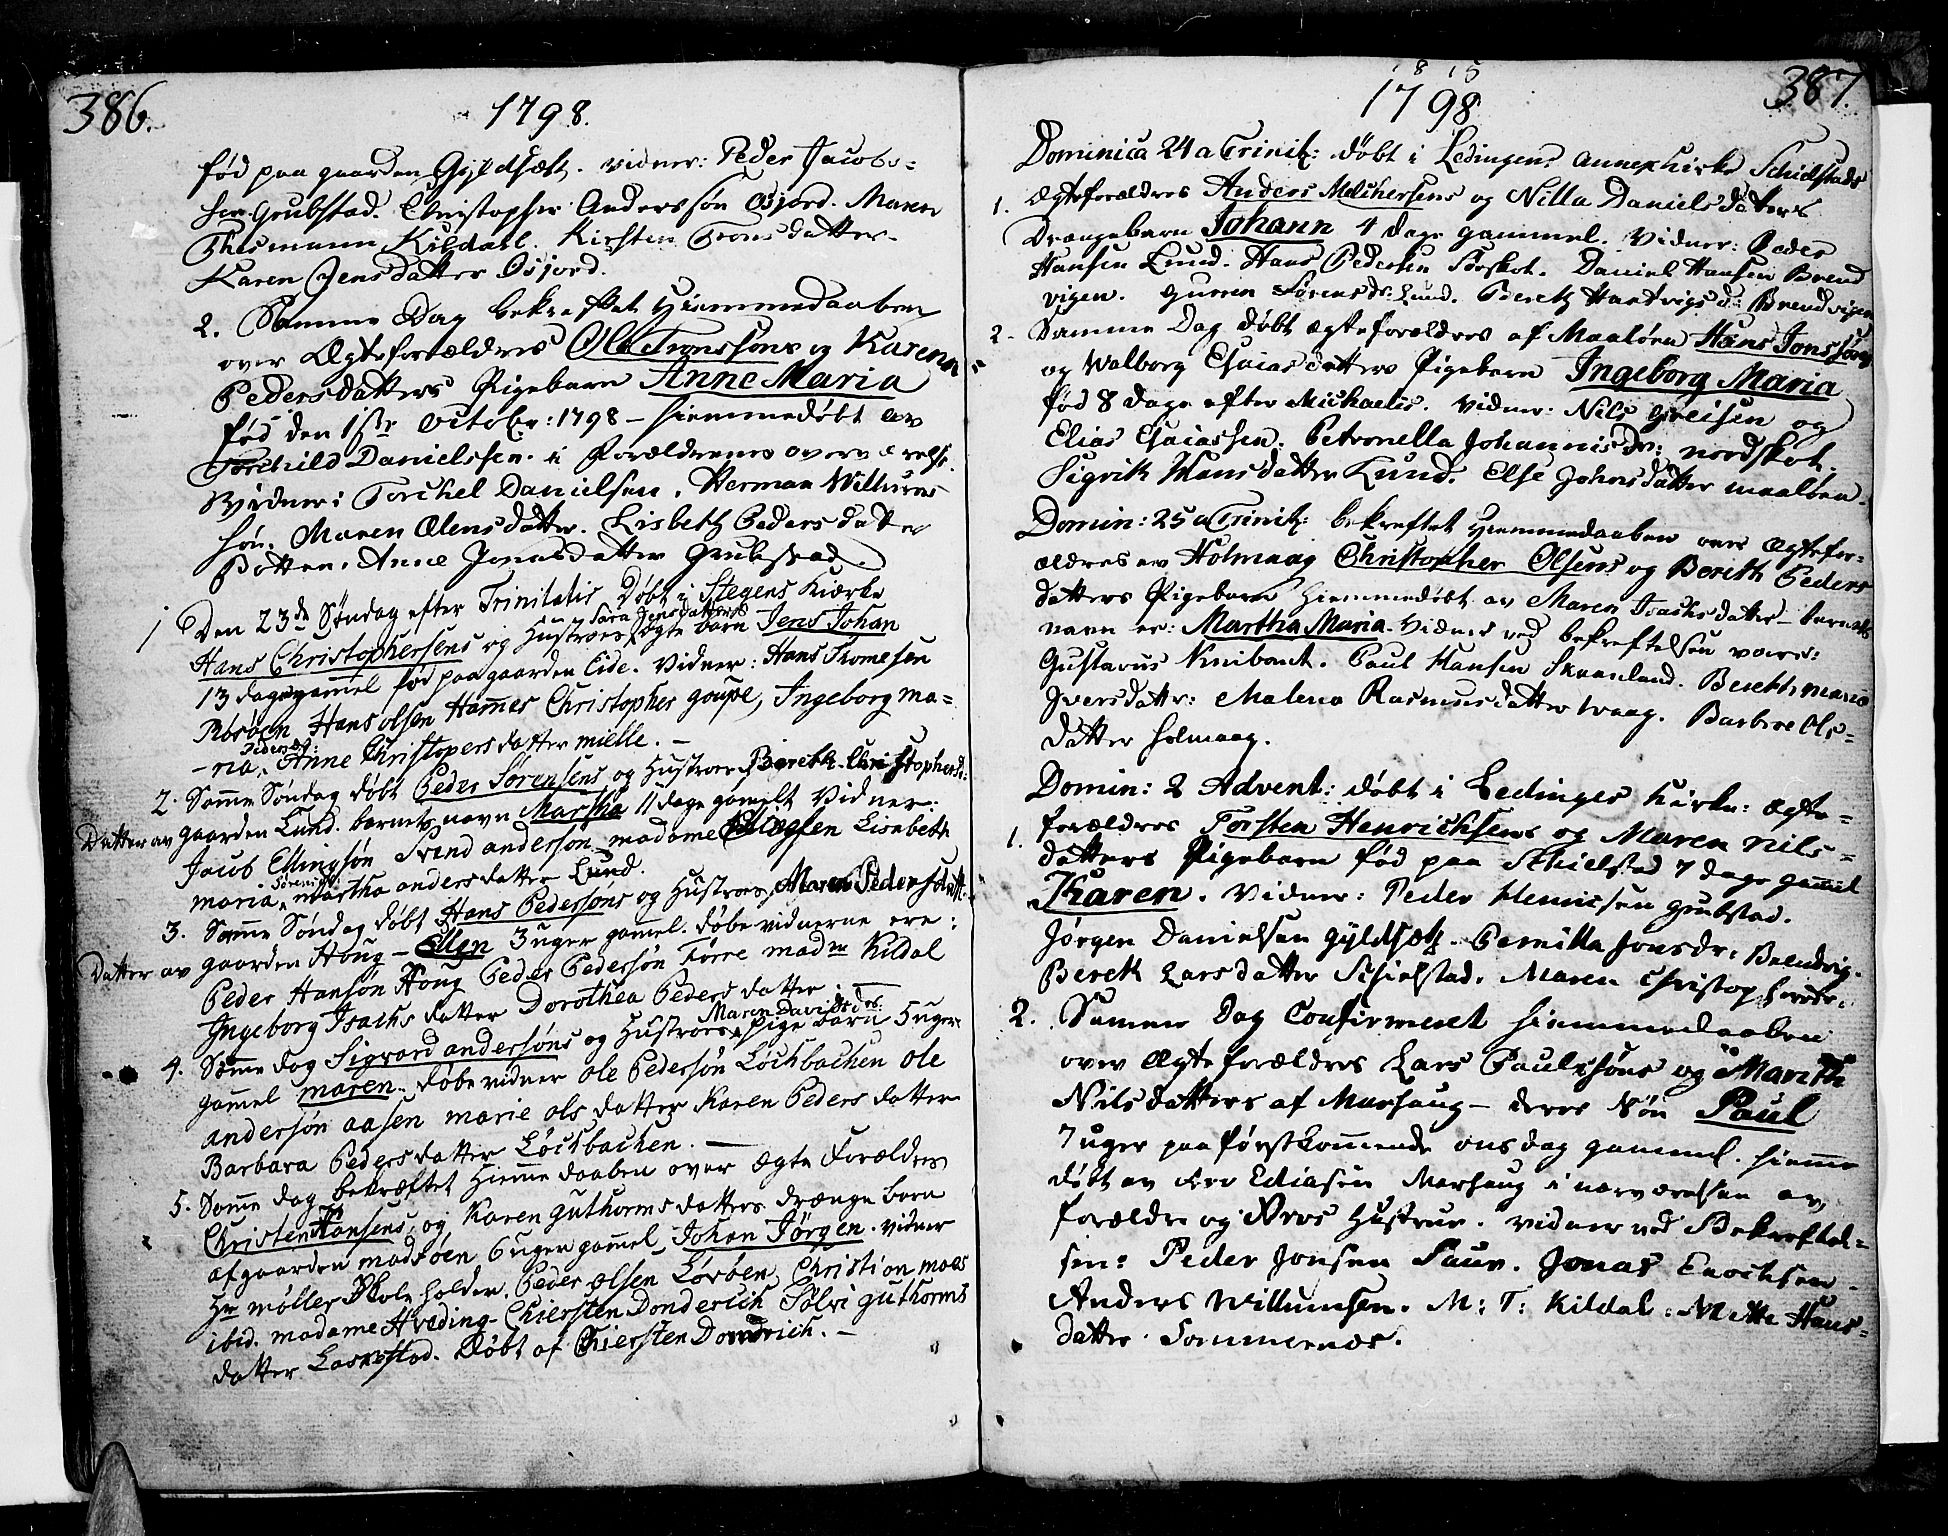 386.
1798.
fød paa gaarden Gyldsæt. vidner: Peder Jacobs-
sen Grubstad. Christopher Anderssøn Osjord. Maren
Thesmann Kildatl. Kirsten Tronsdatter
Karen Jensdatter Osjord.
2. Samme Dag bekræftet Hiemmedaaben
over Ægteforældres Ole Tronssøns og Karen
Pedersdatters Pigebarn Anne Maria
fød den 1ste Octobr: 1798 – hiemmedøbt av
Torchild Danielssen i Forældrenes overværelse.
Vidner: Torchel Danielsen. Herman Willums
søn. Maren Olensdatter. Lisbeth Pedersdatter
Botten. Anne Jonasdatter Grubstad.
1 Den 23de Søndag efter Trinitatis Døbt i Stegens Kiærke
Sara Jensdatters
Hans Christophersens og Hustroes ægte barn Jens Johan
13 dage gammel fød paa gaarden Eide. Vidner: Hans Thomesen
Hans olsen Hamnes Christopher goupe, Ingeborg ma-
-ria Anne Christopersdatter mielle. –
2. Samme Søndag døbt Peder Sørensens og Hustroes Bereth Christophers
Datter av gaarden Lund. barnets navn Martha 11 dage gamelt Vidner:
Jacob Ellingsøn Svend anderson madame Lisbeth
maria, martha andersdatter Lund.
3. Samme Søndag døbt Hans Pedersøns og Hustroes Maren Pedersdatters
Datter av gaarden Houg – Ellen 3 uger gamel. døbe vidnerne ere:
Peder Hansøn Houg Peder Pedersøn Tørre madm Kildal
Ingeborg Isachsdatter Dorothea Pedersdatter: –
Maren Davidsdr:
4. Samme dag Sigvard andersøns og Hustroes Pige barn 5 uger
gammel maren. døbe vidner ole Pedersøn Løchbachen ole
andersøn aasen marie olsdatter Karen Pedersdatter
Barbara Pedersdatter Løchbachen. –
5. Samme dag bekræftet Hiemme daaben over ægte Forældres
Christen Hansens, og Karen Guthormsdatters drænge barn
af gaarden madsøen 6 uger gammel Johan Jørgen. vidner
Hr møller Skole holder. Peder olsen Løvøen, Christian moes
ibid. madame Hveding Chiersten Donderich Sølvi guthorms
datter Laskestad. Døbt af Chiersten Dondrich. –
387.
1815
1798
Dominica 24 a Trinit: døbt i Lødingens annex kirke Schielstads
1. ægteforældres Anders Melchersens og Nilla Danielsdatters
Drængebarn Johann 4 dage gammel. Vidner: Peder
Hansen Lund. Hans Pedersen Forskot. Daniel Hansen Brend
vigen. Guren Sørensdr: Lund. Bereth Hartvigsd: Brendvigen
2. Samme Dag døbt ægteforældres af Maaløen Hans Jonssøns
og Walborg Esaiasdatters Pigebarn Ingeborg Maria
fød 8 dage efter Michaelis. Vidner: Nils Greisen og
Elias Esaiassen. Petronella Johannisdr: nordskot.
Sigrik Hansdatter Lund. Else Johnsdatter maaløen.
Domin: 25 a Trinit: bekræftet Hiemmedaaben over ægtefor-
ældres av Holmaag Christopher Olsens og Bereth Peders
datters Pigebarn hiemmedøbt av Maren Isachsdatter – barnets
navn er: Martha Maria. Vidner ved bekræftelsen vare:
Gustavus . Paul Hansen Skaanland. Bereth maria
Iversdatter: Malena Rasmusdatter waag. Barbro Ols-
datter holmaag.
Domin: 2 Advent: døbt i Lødinges kirke: ægte-
1. forældres Torsten Henrichsens og Maren Nils-
datters Pigebarn fød paa Schielstad 7 dage gammel
Karen. Vidner: Peder Henricsen Grubstad.
Jørgen Danielsen Gyldsæt. Pernilla Jonsdr: Brendvig.
Bereth Larsdatter Schielstad. Maren Christophersdr:
2. Samme Dag Confirmeret hiemmedaaben
over Ægteforældres Lars Paulssøns og Marith
Nilsdatters af Marhaug – deres Søn Paul
7 uger paa førstkommende onsdag gammel. hiemme
døbt av Are Ediasen Marhaug i nærværelsen av
forældre og Ares Hustrue. Vidner ved Bekræftel-
sen: Peder Jonsen Saur. Jonas Enochsen
Anders Willumsen. M: T: Kildal. Mette Hans-
datter Sommernæs.